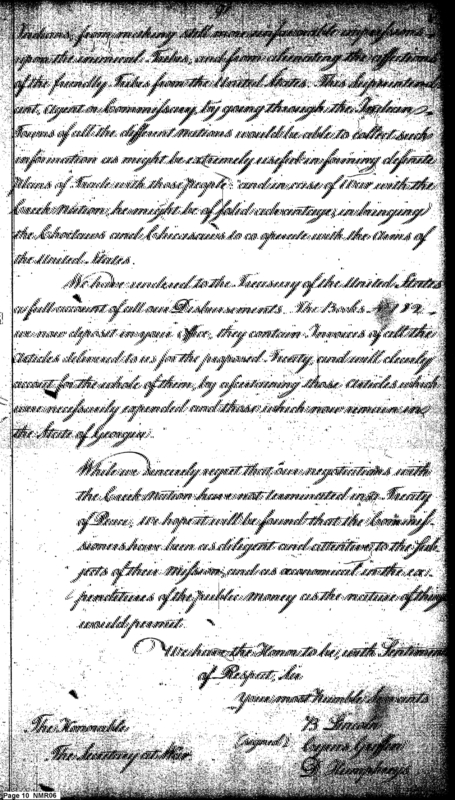 Indians, from making still more unfavorable impressions
upon the inimical Tribes, and from alienating the affections
of the friendly Tribes from the United States. This Superintend-
ent, Agent or Commissary, by going through the Indian
Towns of all the different Nations would be able to collect such
information as might be extremely useful in forming definite
Plans of Trade with those people: and in case of War with the
Creek Nation, he might be of solid advantage, in bringing
the Choctaws and Chicasaws to co operate with the Arms of
the United States.
We have rendered to the Treasury of the United States
a full account of all our Disbursements. The Books No 1 & 2
we now deposit in your Office, they contain Invoices of all the
Articles delivered to us for the proposed Treaty, and will clearly
account for the whole of them, by ascertaining those Articles which
were necessarily expended and those which now remain in
the State of Georgia.
While we sincerely regret that our negotiations with
the Creek Nation have not terminated in a Treaty
of Peace, we hope it will be found that the Commis-
sioners have been as diligent and attentive to the Sub-
jects of their Mission, and as œconomical in the ex-
penditures of the public money as the nature of things
would permit.
We have the Honor to be, with Sentiments
of Respect, Sir
Your most humble Servants
The Honorable
The Secretary at War
(signed)
B Lincoln
Cyrus Griffin
D Humphreys
Page 10 NMR06